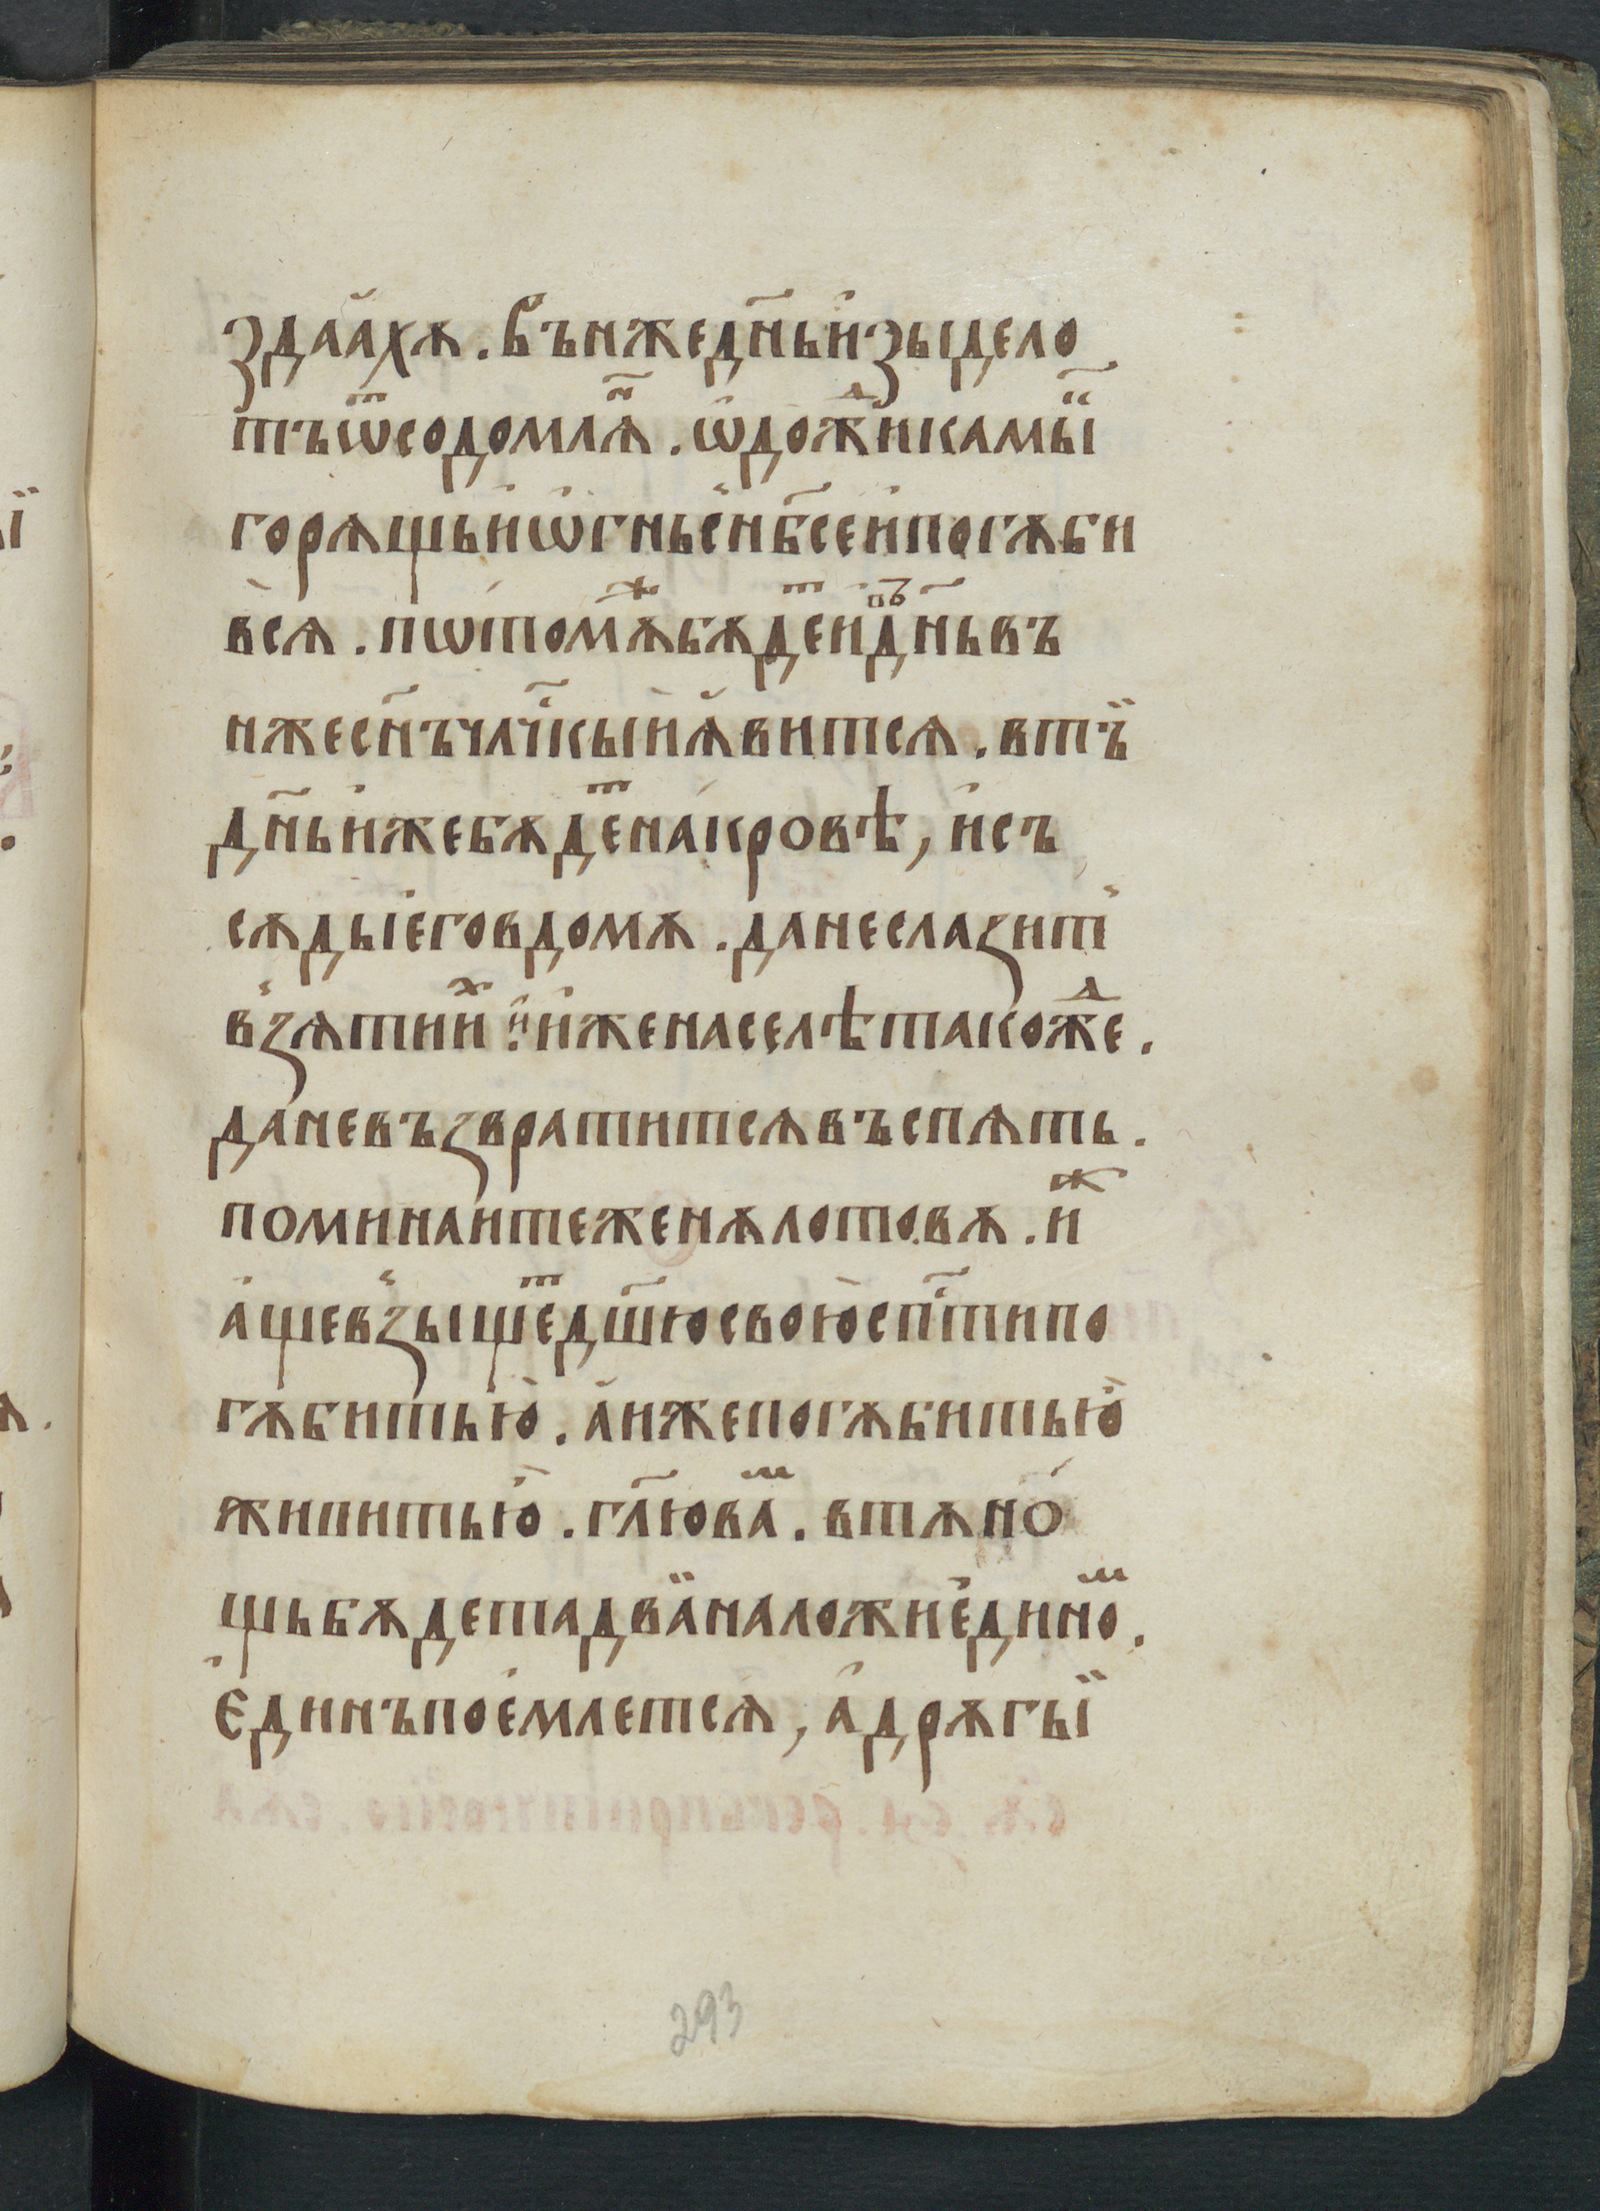 здаахѫ. Въ нже дн҃ь и҆зыде ло
тъ ѿ содомлѧⷩ҇. ѡ҆дожⷣи камы҃ї
горѧщь и҆ ѡ҆гнь с̾ нб҃се и҆ погѫби
всѧ. пѡтомѫⷤ бѫдеⷮ и҆ дн҃ьвъ
нже сн҃ъ чл҃чк̑ыи ꙗ҆витсѧ. в тъ̏
дн҃ь и҆же бѫдеⷮ на кровѣ, и҆ съ
сѫды е҆го в домѫ. да не слазит̾
в̾зѧти иⷯ. и҆ и҆же на селѣ такожⷣе.
да не възвратитсѧ въспѧть.
поминаите женѫ лотовѫ. иⷤ
а҆ще в̾зыщеⷮ дш҃ю свою҆ сп҃сти по
гѫбить ю҆. а҆ иже погѫбить ю҆
живить ю҆. гл҃ю ваⷨ. в тѫ но
щь бѫдета два̏ на ложи е҆диноⷨ.
Е҆динъ поемлетсѧ, а҆ дрѫгыї
293